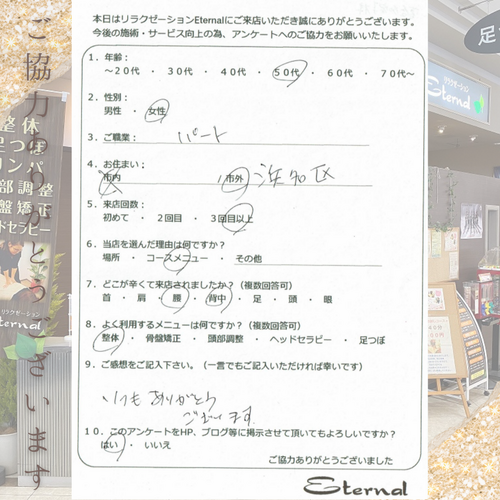 本日はリラクゼーションEternalにご来店いただき誠にありがとうございます。
今後の施術・サービス向上の為、アンケートへのご協力をお願いいたします。
1．年齢：
～20代 ・ 30代 ・ 40代 ・ 50代 ・ 60代 ・ 70代～
2．性別：
男性 ・ 女性
3．ご職業： パート
4．お住まい：
市内 ・ 市外 浜名区
5．来店回数：
初めて ・ 2回目 ・ 3回目以上
6．当店を選んだ理由は何ですか？
場所 ・ コースメニュー ・ その他
7．どこが辛くて来店されましたか？（複数回答可）
首 ・ 肩 ・ 腰 ・ 背中 ・ 足 ・ 頭 ・ 眼
8．よく利用するメニューは何ですか？（複数回答可）
整体 ・ 骨盤矯正 ・ 頭部調整 ・ ヘッドセラピー ・ 足つぼ
9．ご感想をご記入下さい。（一言でもご記入いただければ幸いです）
いつもありがとう
ございます
10．このアンケートをHP、ブログ等に掲示させて頂いてもよろしいですか？
はい ・ いいえ
ご協力ありがとうございました
Eternal
ご協力ありがとうございます
整体
足つぼ
リンパ
部調整
盤矯正
ドセラピー
リラクゼーション
Eternal
足
リラクゼーション
Eternal